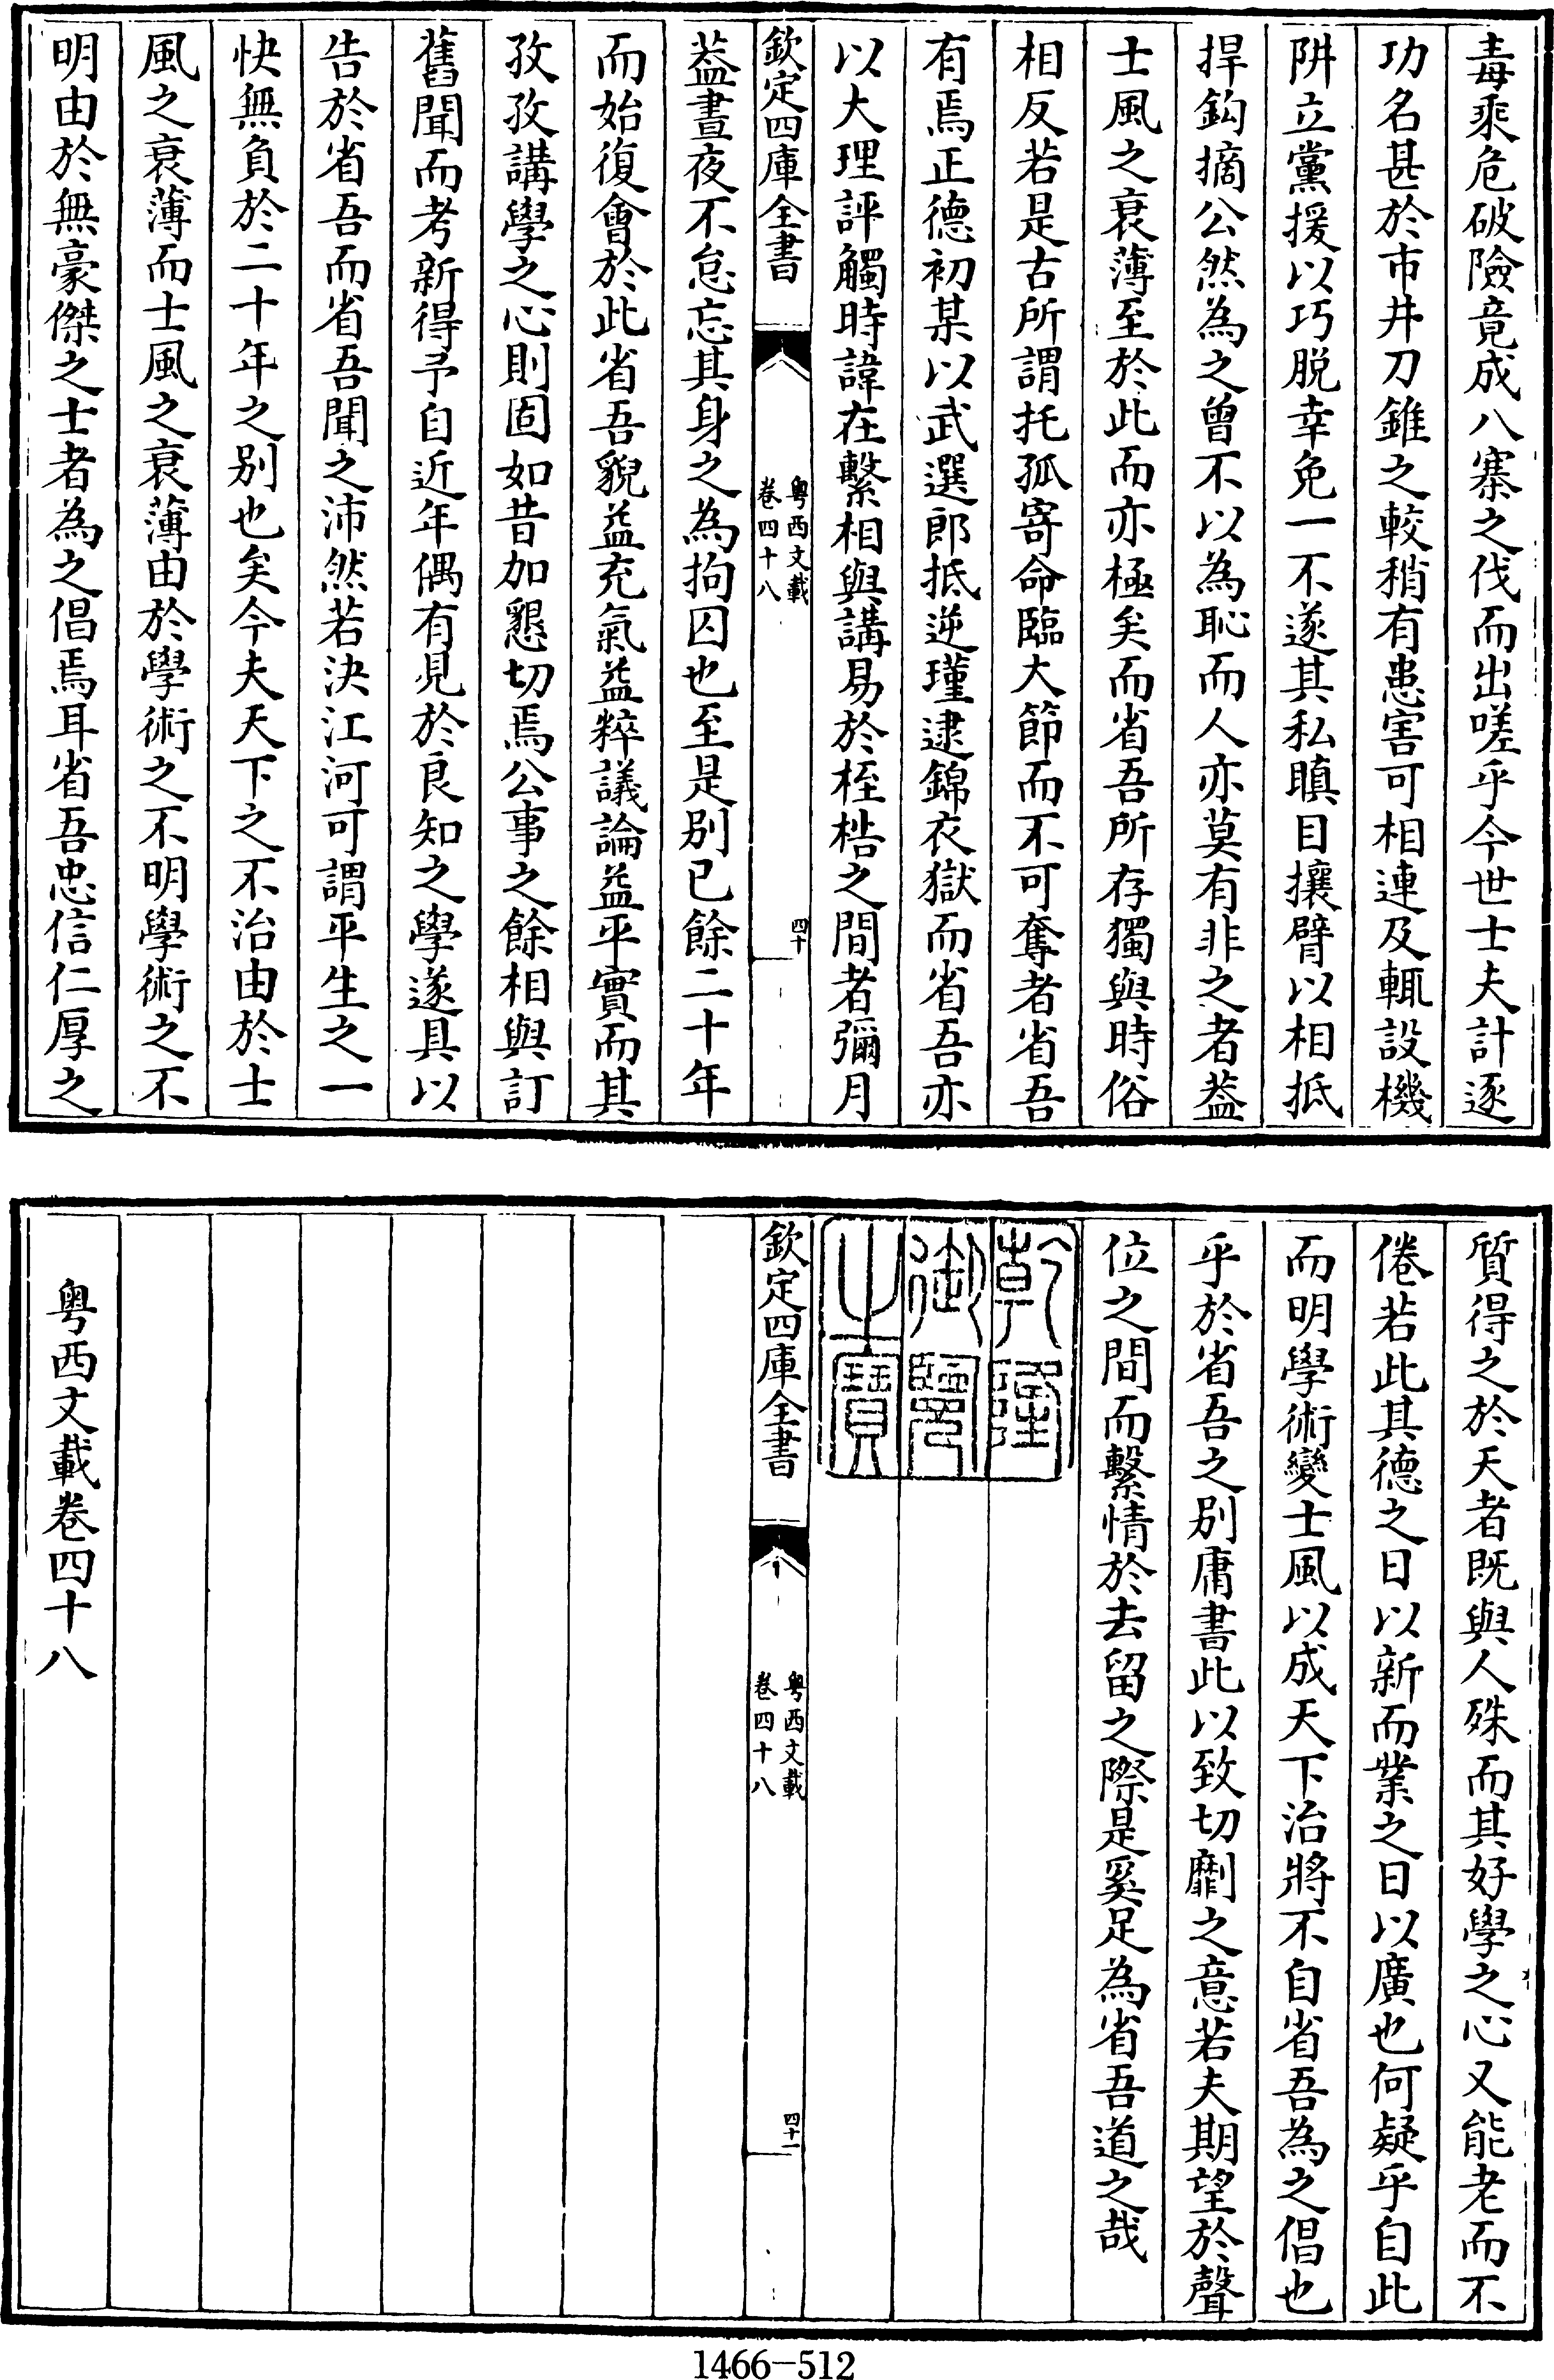 毒乘危破險竟成八寨之伐而出嗟乎今世士夫計逐
功名甚於市井刀錐之較稍有患害可相連及輒設機
阱立黨援以巧脱幸免一不遂其私瞋目攘臂以相抵
捍鈎摘公然為之曾不以為恥而人亦莫有非之者葢
士風之衰薄至於此而亦極矣而省吾所存獨與時俗
相反若是古所謂托孤寄命臨大節而不可奪者省吾
有焉正德初某以武選郎抵逆瑾逮錦衣獄而省吾亦
以大理評觸時諱在繫相與講易於桎梏之間者彌月
欽定四庫全書
粤西文載
卷四十八
四十
葢晝夜不怠忘其身之為拘囚也至是别已餘二十年
而始復會於此省吾貌益充氣益粹議論益平實而其
孜孜講學之心則固如昔加懇切焉公事之餘相與訂
舊聞而考新得予自近年偶有見於良知之學遂具以
告於省吾而省吾聞之沛然若決江河可謂平生之一
快無負於二十年之别也矣今夫天下之不治由於士
風之衰薄而士風之衰薄由於學術之不明學術之不
明由於無豪傑之士者為之倡焉耳省吾忠信仁厚之
質得之於天者既與人殊而其好學之心又能老而不
倦若此其德之日以新而業之日以廣也何疑乎自此
而明學術變士風以成天下治將不自省吾為之倡也
乎於省吾之别庸書此以致切劘之意若夫期望於聲
位之間而繫情於去留之際是奚足為省吾道之哉
乾隆
御覽
之寶
欽定四庫全書
粤西文載
卷四十八
四十一
粤西文載卷四十八
1466-512